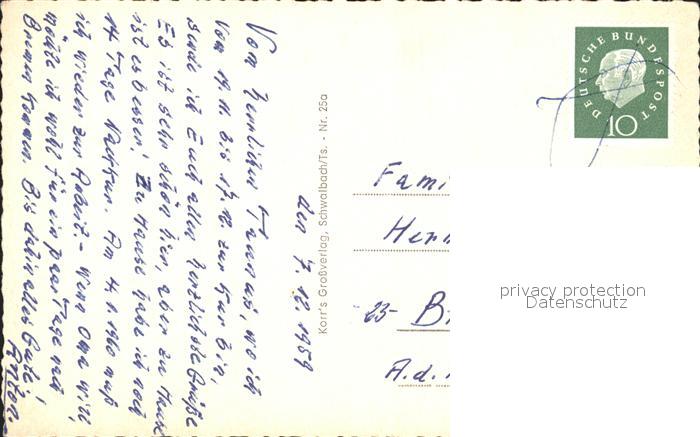 den 7. 12. 1959
Vom herrlichen Taunus, wo ich
vom 19. 11. bis 17. 12. zur Kur bin,
sende ich Euch allen herzlichste Grüße
Es ist sehr schön hier, aber zu Hause
ist es besser! Zu Hause habe ich noch
14 Tage Nachkur. Am 4. 1. 1960 muß
ich wieder zur Arbeit. - Wenn Oma will
möchte ich wohl für ein paar Tage nach
Bremen kommen. Bis dahin alles Gute!
Anton.
Korr's Großverlag, Schwalbach/Ts. - Nr. 25a
DEUTSCHE BUNDESPOST
10
Fami
Herm
23- Br
A.d.
privacy protection
Datenschutz